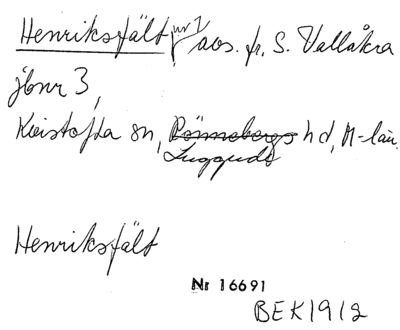 Henriksfält, nr 1 avs. fr. S. Vallåkra
jbnr 3,
Kristofta sn, Rönnebergs hd, M-län.
Luggude
Henriksfält
Nr 16691
BEK1912